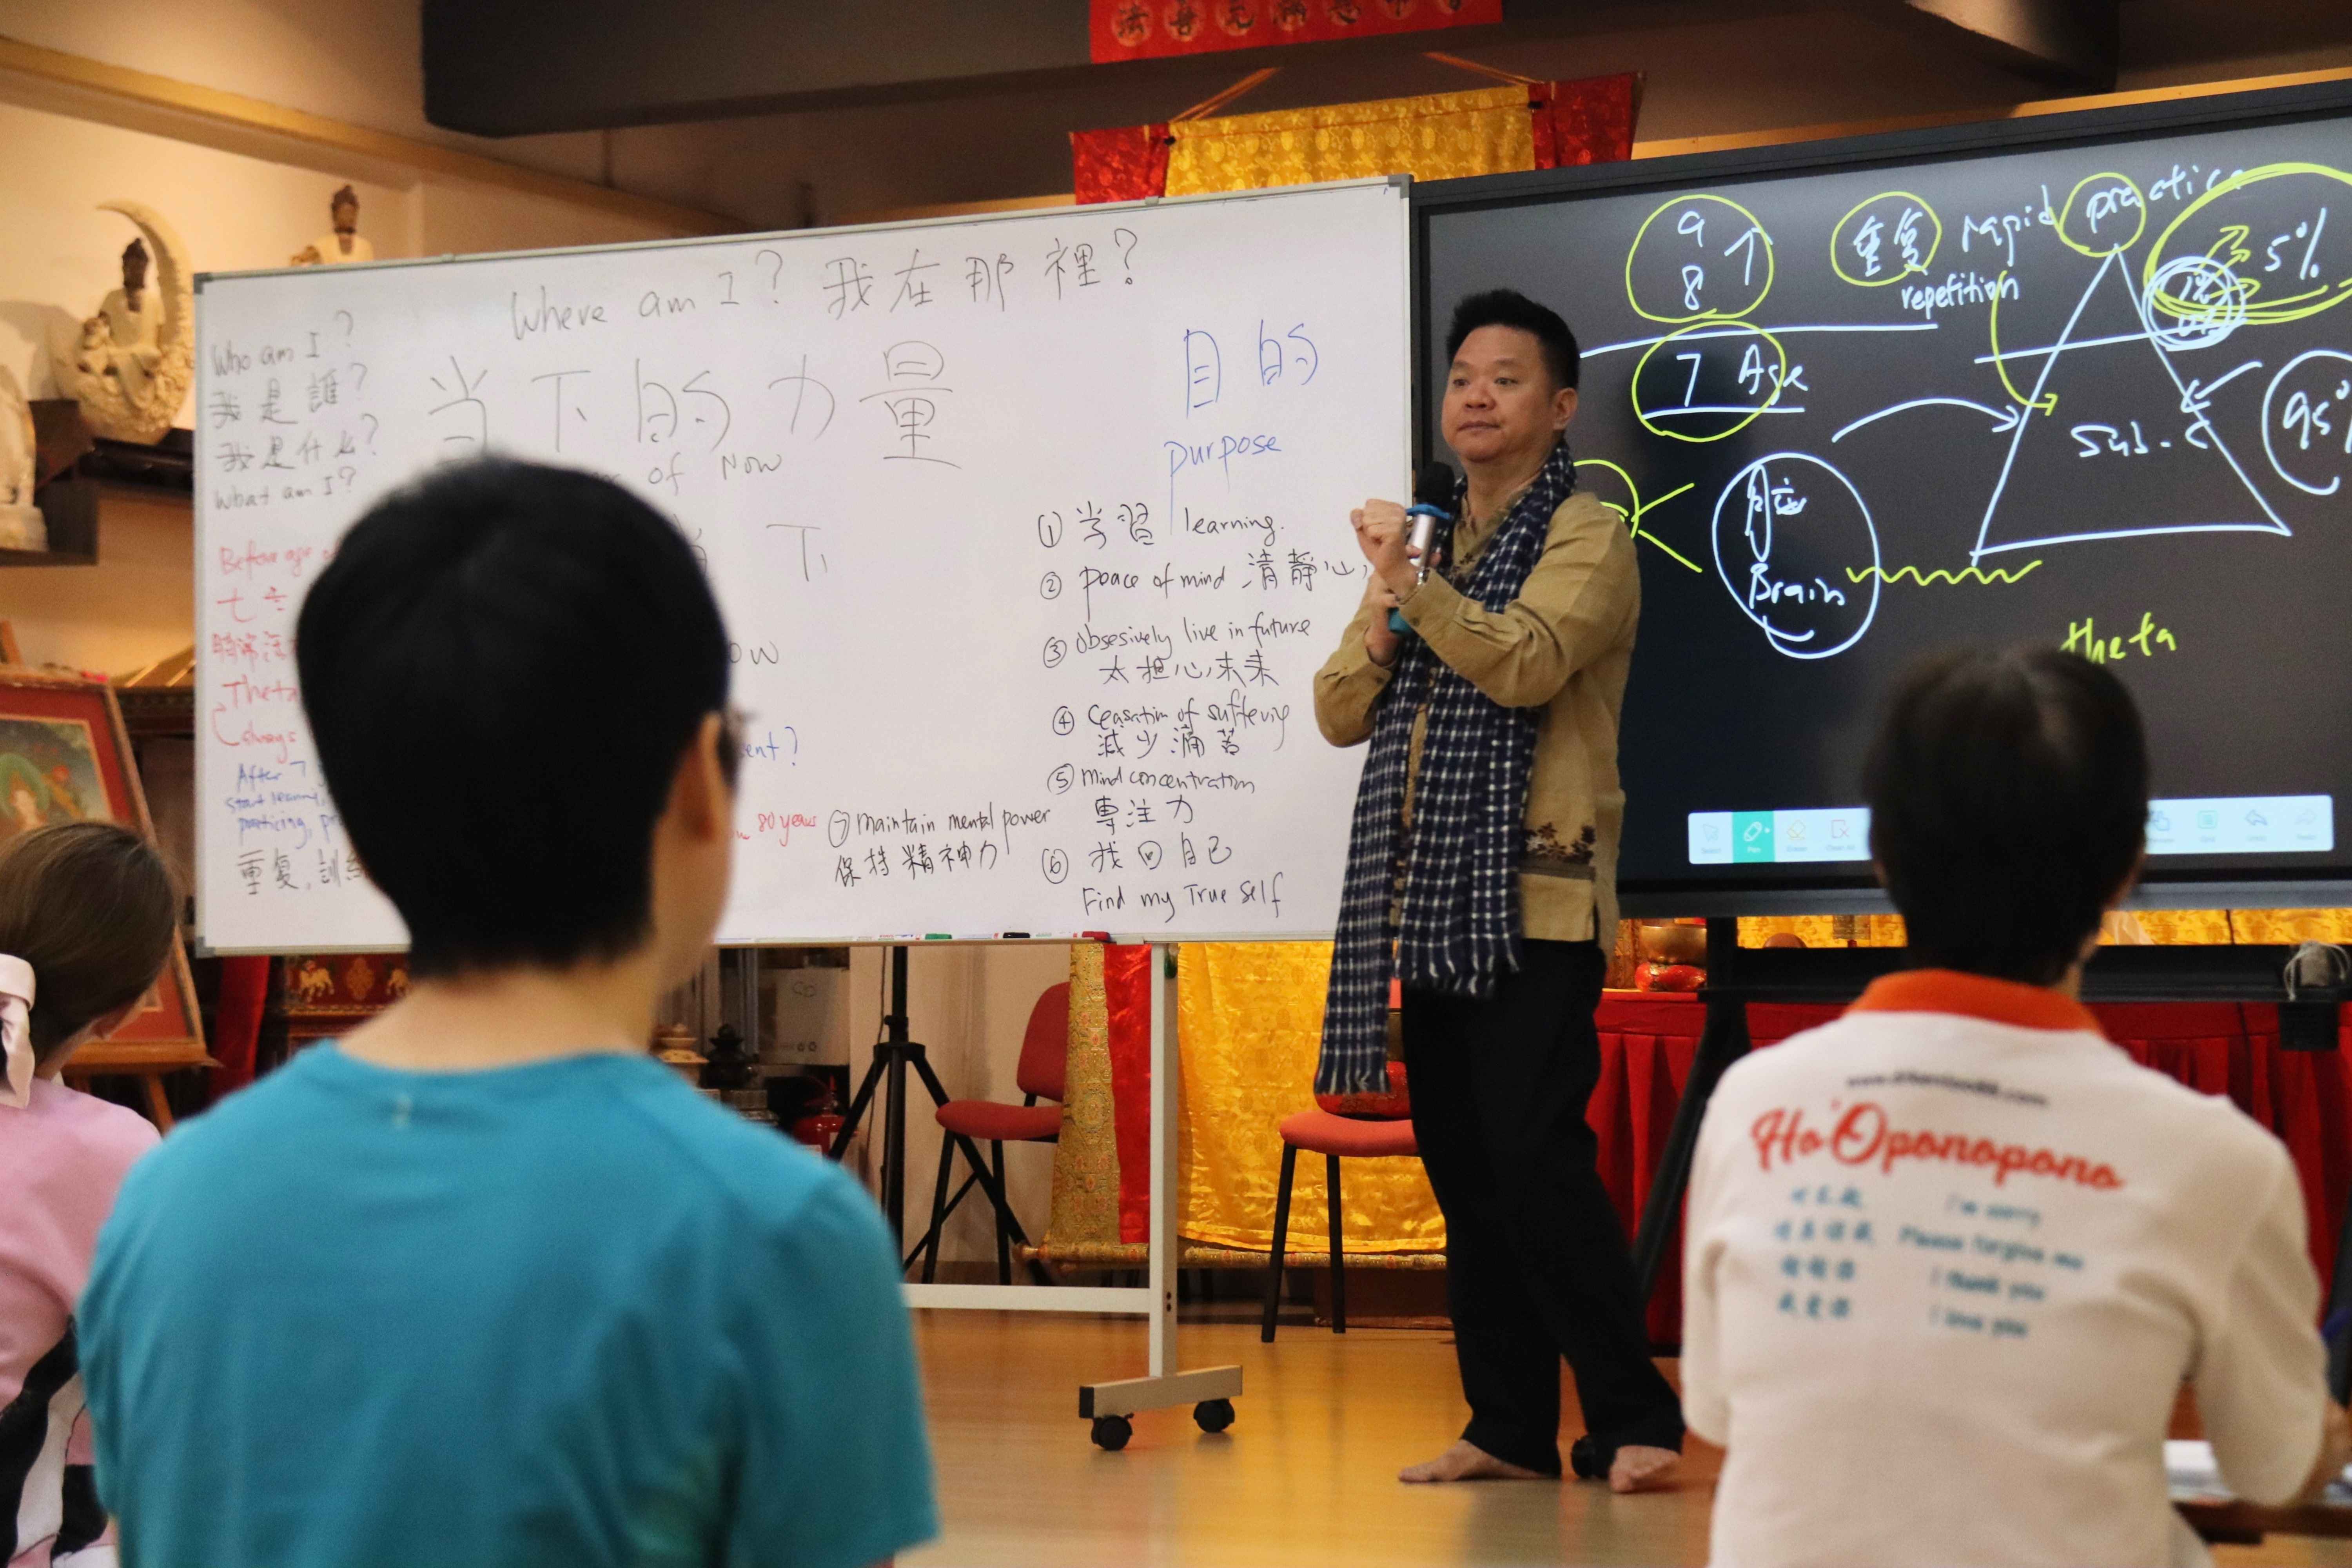 Where am I? 我在那裡?
Who am I?
我是誰?
我是什么?
What am I?
当下的力量
of Now
下
ow
ent?
Before age
七
Theta
always
After 7
start learning,
practicing, pr
重复,訓
80 years
⑦ maintain mental power
保持精神力
目的
purpose
① 学習 learning.
② peace of mind 清靜心,
③ obsesively live in future
太担心未来
④ Ceasation of suffering
減少痛苦
⑤ mind concentration
專注力
⑥ 找回自己
Find my True self
9
8
7 Age
重复 rapid practice
repetition
5%
95%
Sub-C
脑
Brain
theta
Ho'Oponopono
对不起 I'm sorry
请原谅我 Please forgive me
谢谢你 I thank you
我爱你 I love you